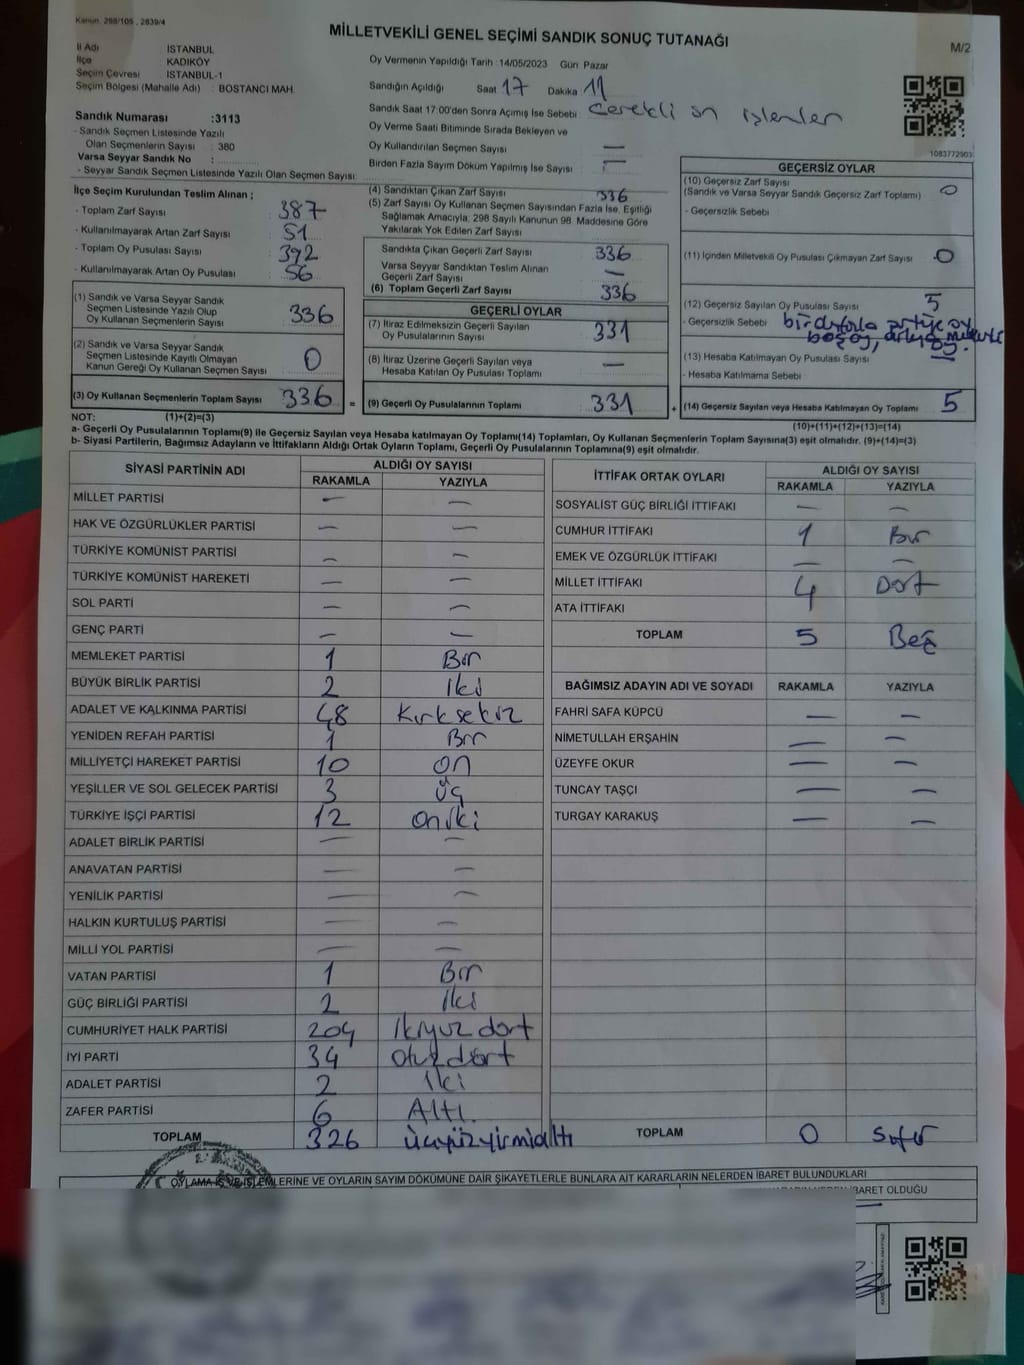 Kanun. 298/105 , 2839/4
MİLLETVEKİLİ GENEL SEÇİMİ SANDIK SONUÇ TUTANAĞI
M/2
İl Adı İSTANBUL
İlçe KADIKÖY
Seçim Çevresi İSTANBUL-1
Seçim Bölgesi (Mahalle Adı) : BOSTANCI MAH.
Sandık Numarası :3113
- Sandık Seçmen Listesinde Yazılı
Olan Seçmenlerin Sayısı : 380
Varsa Seyyar Sandık No :
- Seyyar Sandık Seçmen Listesinde Yazılı Olan Seçmen Sayısı:
Oy Vermenin Yapıldığı Tarih :14/05/2023 Gün Pazar
Sandığın Açıldığı Saat 17 Dakika 11
Sandık Saat 17:00'den Sonra Açılmış İse Sebebi : Gerekli ön işlemler
Oy Verme Saati Bitiminde Sırada Bekleyen ve
Oy Kullandırılan Seçmen Sayısı —
Birden Fazla Sayım Döküm Yapılmış İse Sayısı : —
1083772903
İlçe Seçim Kurulundan Teslim Alınan ;
- Toplam Zarf Sayısı : 387
- Kullanılmayarak Artan Zarf Sayısı : 51
- Toplam Oy Pusulası Sayısı : 392
- Kullanılmayarak Artan Oy Pusulası : 56
(1) Sandık ve Varsa Seyyar Sandık
Seçmen Listesinde Yazılı Olup
Oy Kullanan Seçmenlerin Sayısı 336
(2) Sandık ve Varsa Seyyar Sandık
Seçmen Listesinde Kayıtlı Olmayan
Kanun Gereği Oy Kullanan Seçmen Sayısı 0
(3) Oy Kullanan Seçmenlerin Toplam Sayısı 336 =
(4) Sandıktan Çıkan Zarf Sayısı 336
(5) Zarf Sayısı Oy Kullanan Seçmen Sayısından Fazla İse, Eşitliği
Sağlamak Amacıyla; 298 Sayılı Kanunun 98. Maddesine Göre
Yakılarak Yok Edilen Zarf Sayısı
Sandıkta Çıkan Geçerli Zarf Sayısı 336
Varsa Seyyar Sandıktan Teslim Alınan
Geçerli Zarf Sayısı —
(6) Toplam Geçerli Zarf Sayısı 336
GEÇERLİ OYLAR
(7) İtiraz Edilmeksizin Geçerli Sayılan
Oy Pusulalarının Sayısı 331
(8) İtiraz Üzerine Geçerli Sayılan veya
Hesaba Katılan Oy Pusulası Toplamı —
(9) Geçerli Oy Pusulalarının Toplamı 331 +
GEÇERSİZ OYLAR
(10) Geçersiz Zarf Sayısı
(Sandık ve Varsa Seyyar Sandık Geçersiz Zarf Toplamı) 0
- Geçersizlik Sebebi
(11) İçinden Milletvekili Oy Pusulası Çıkmayan Zarf Sayısı 0
(12) Geçersiz Sayılan Oy Pusulası Sayısı 5
- Geçersizlik Sebebi birden fazla partiye oy
boş oy,
(13) Hesaba Katılmayan Oy Pusulası Sayısı —
- Hesaba Katılmama Sebebi
(14) Geçersiz Sayılan veya Hesaba Katılmayan Oy Toplamı 5
NOT: (1)+(2)=(3)
(10)+(11)+(12)+(13)=(14)
a- Geçerli Oy Pusulasının Toplamı(9) ile Geçersiz Sayılan veya Hesaba katılmayan Oy Toplamı(14) Toplamları, Oy Kullanan Seçmenlerin Toplam Sayısına(3) eşit olmalıdır. (9)+(14)=(3)
b- Siyasi Partilerin, Bağımsız Adayların ve İttifakların Aldığı Ortak Oyların Toplamı, Geçerli Oy Pusulalarının Toplamına(9) eşit olmalıdır.
SİYASİ PARTİNİN ADI ALDIĞI OY SAYISI
RAKAMLA YAZIYLA
MİLLET PARTİSİ — —
HAK VE ÖZGÜRLÜKLER PARTİSİ — —
TÜRKİYE KOMÜNİST PARTİSİ — —
TÜRKİYE KOMÜNİST HAREKETİ — —
SOL PARTİ — —
GENÇ PARTİ — —
MEMLEKET PARTİSİ 1 Bir
BÜYÜK BİRLİK PARTİSİ 2 İki
ADALET VE KALKINMA PARTİSİ 48 Kırksekiz
YENİDEN REFAH PARTİSİ 1 Bir
MİLLİYETÇİ HAREKET PARTİSİ 10 On
YEŞİLLER VE SOL GELECEK PARTİSİ 3 Üç
TÜRKİYE İŞÇİ PARTİSİ 12 Oniki
ADALET BİRLİK PARTİSİ — —
ANAVATAN PARTİSİ — —
YENİLİK PARTİSİ — —
HALKIN KURTULUŞ PARTİSİ — —
MİLLİ YOL PARTİSİ — —
VATAN PARTİSİ 1 Bir
GÜÇ BİRLİĞİ PARTİSİ 2 İki
CUMHURİYET HALK PARTİSİ 204 İkiyüz dört
İYİ PARTİ 34 Otuz dört
ADALET PARTİSİ 2 İki
ZAFER PARTİSİ 6 Altı
TOPLAM 326 üçyüzyirmialtı
İTTİFAK ORTAK OYLARI ALDIĞI OY SAYISI
RAKAMLA YAZIYLA
SOSYALİST GÜÇ BİRLİĞİ İTTİFAKI — —
CUMHUR İTTİFAKI 1 Bir
EMEK VE ÖZGÜRLÜK İTTİFAKI — —
MİLLET İTTİFAKI 4 Dört
ATA İTTİFAKI
TOPLAM 5 Beş
BAĞIMSIZ ADAYIN ADI VE SOYADI RAKAMLA YAZIYLA
FAHRİ SAFA KÜPCÜ — —
NİMETULLAH ERŞAHİN — —
ÜZEYFE OKUR — —
TUNCAY TAŞÇI — —
TURGAY KARAKUŞ — —
TOPLAM 0 Sıfır
OYLAMA İŞ VE İŞLEMLERİNE VE OYLARIN SAYIM DÖKÜMÜNE DAİR ŞİKAYETLERLE BUNLARA AİT KARARLARIN NELERDEN İBARET BULUNDUKLARI
İBARET OLDUĞU